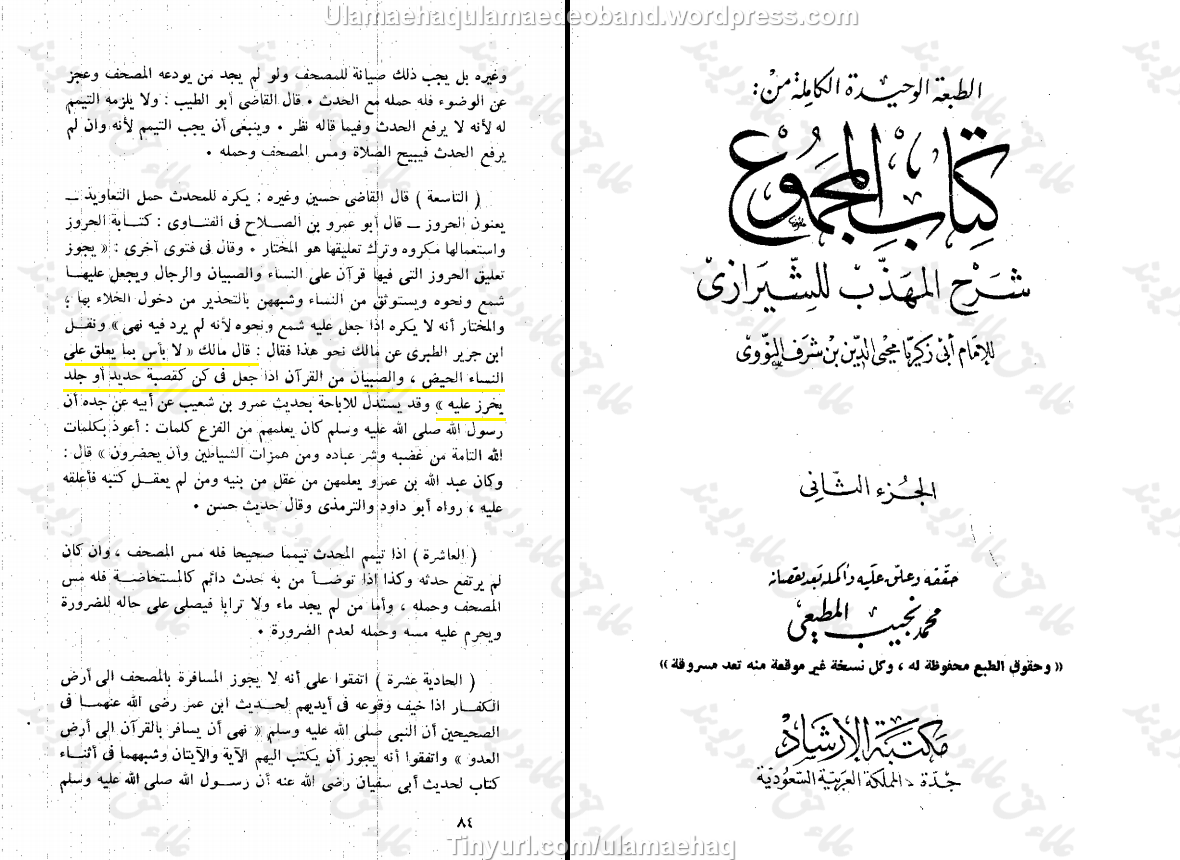 Ulamaehaqulamaedeoband.wordpress.com
الطبعة الوحيدة الكاملة من:
كتاب المجموع
شرح المهذب للشيرازي
للإمام أبي زكريا محيي الدين بن شرف النووي
الجزء الثاني
حققه وعلق عليه وأكمله بعد نقصانه
محمد نجيب المطيعي
« وحقوق الطبع محفوظة له ، وكل نسخة غير موقعة منه تعد مسروقة »
مكتبة الإرشاد
جدة - المملكة العربية السعودية
وغيره بل يجب ذلك صيانة للمصحف ولو لم يجد من يودعه المصحف وعجز
عن الوضوء فله حمله مع الحدث • قال القاضى أبو الطيب : ولا يلزمه التيمم
له لأنه لا يرفع الحدث وفيما قاله نظر • وينبغى أن يجب التيمم لأنه وان لم
يرفع الحدث فيبيح الصلاة ومس المصحف وحمله •
( التاسعة ) قال القاضى حسين وغيره : يكره للمحدث حمل التعاويذ ــ
يعنون الحروز ــ قال أبو عمرو بن الصـلاح فى الفتـاوى : كتـابة الحروز
واستعمالها مكروه وترك تعليقها هو المختار • وقال فى فتوى أخرى : « يجوز
تعليق الحروز التى فيها قرآن على النساء والصبيان والرجال ويجعل عليهـا
شمع ونحوه ويستوثق من النساء وشبههن بالتحذير من دخول الخلاء بها ،
والمختار أنه لا يكره اذا جعل عليه شمع ونحوه لأنه لم يرد فيه نهى » ونقـل
ابن جرير الطبرى عن مالك نحو هذا فقال : قال مالك « لا بأس بما يعلق على
النساء الحيض ، والصبيان من القرآن اذا جعل فى كن كقصبة حديد أو جلد
يخرز عليه » وقد يستدل للاباحة بحديث عمرو بن شعيب عن أبيه عن جده أن
رسول الله صلى الله عليه وسلم كان يعلمهم من الفزع كلمات : أعوذ بكلمات
الله التامة من غضبه وشر عباده ومن همزات الشياطين وأن يحضرون » قال :
وكان عبد الله بن عمرو يعلمهن من عقل من بنيه ومن لم يعقـل كتبه فأعلقه
عليه ، رواه أبو داود والترمذى وقال حديث حسن •
( العاشرة ) اذا تيمم المحدث تيمما صحيحا فله مس المصحف ، وان كان
لم يرتفع حدثه وكذا اذا توضـأ من به حدث دائم كالمستحاضـة فله مس
المصحف وحمله ، وأما من لم يجد ماء ولا ترابا فيصلى على حاله للضرورة
ويحرم عليه مسه وحمله لعدم الضرورة •
( الحادية عشرة ) اتفقوا على أنه لا يجوز المسافرة بالمصحف الى أرض
الكفـار اذا خيف وقوعه فى أيديهم لحـديث ابن عمر رضى الله عنهمـا فى
الصحيحين أن النبى صلى الله عليه وسلم « نهى أن يسافر بالقرآن الى أرض
العدو » واتفقوا أنه يجوز أن يكتب اليهم الآية والآيتان وشبههما فى أثنـاء
كتاب لحديث أبى سفيان رضى الله عنه أن رسـول الله صلى الله عليه وسلم
٨٤
Tinyurl.com/ulamaehaq